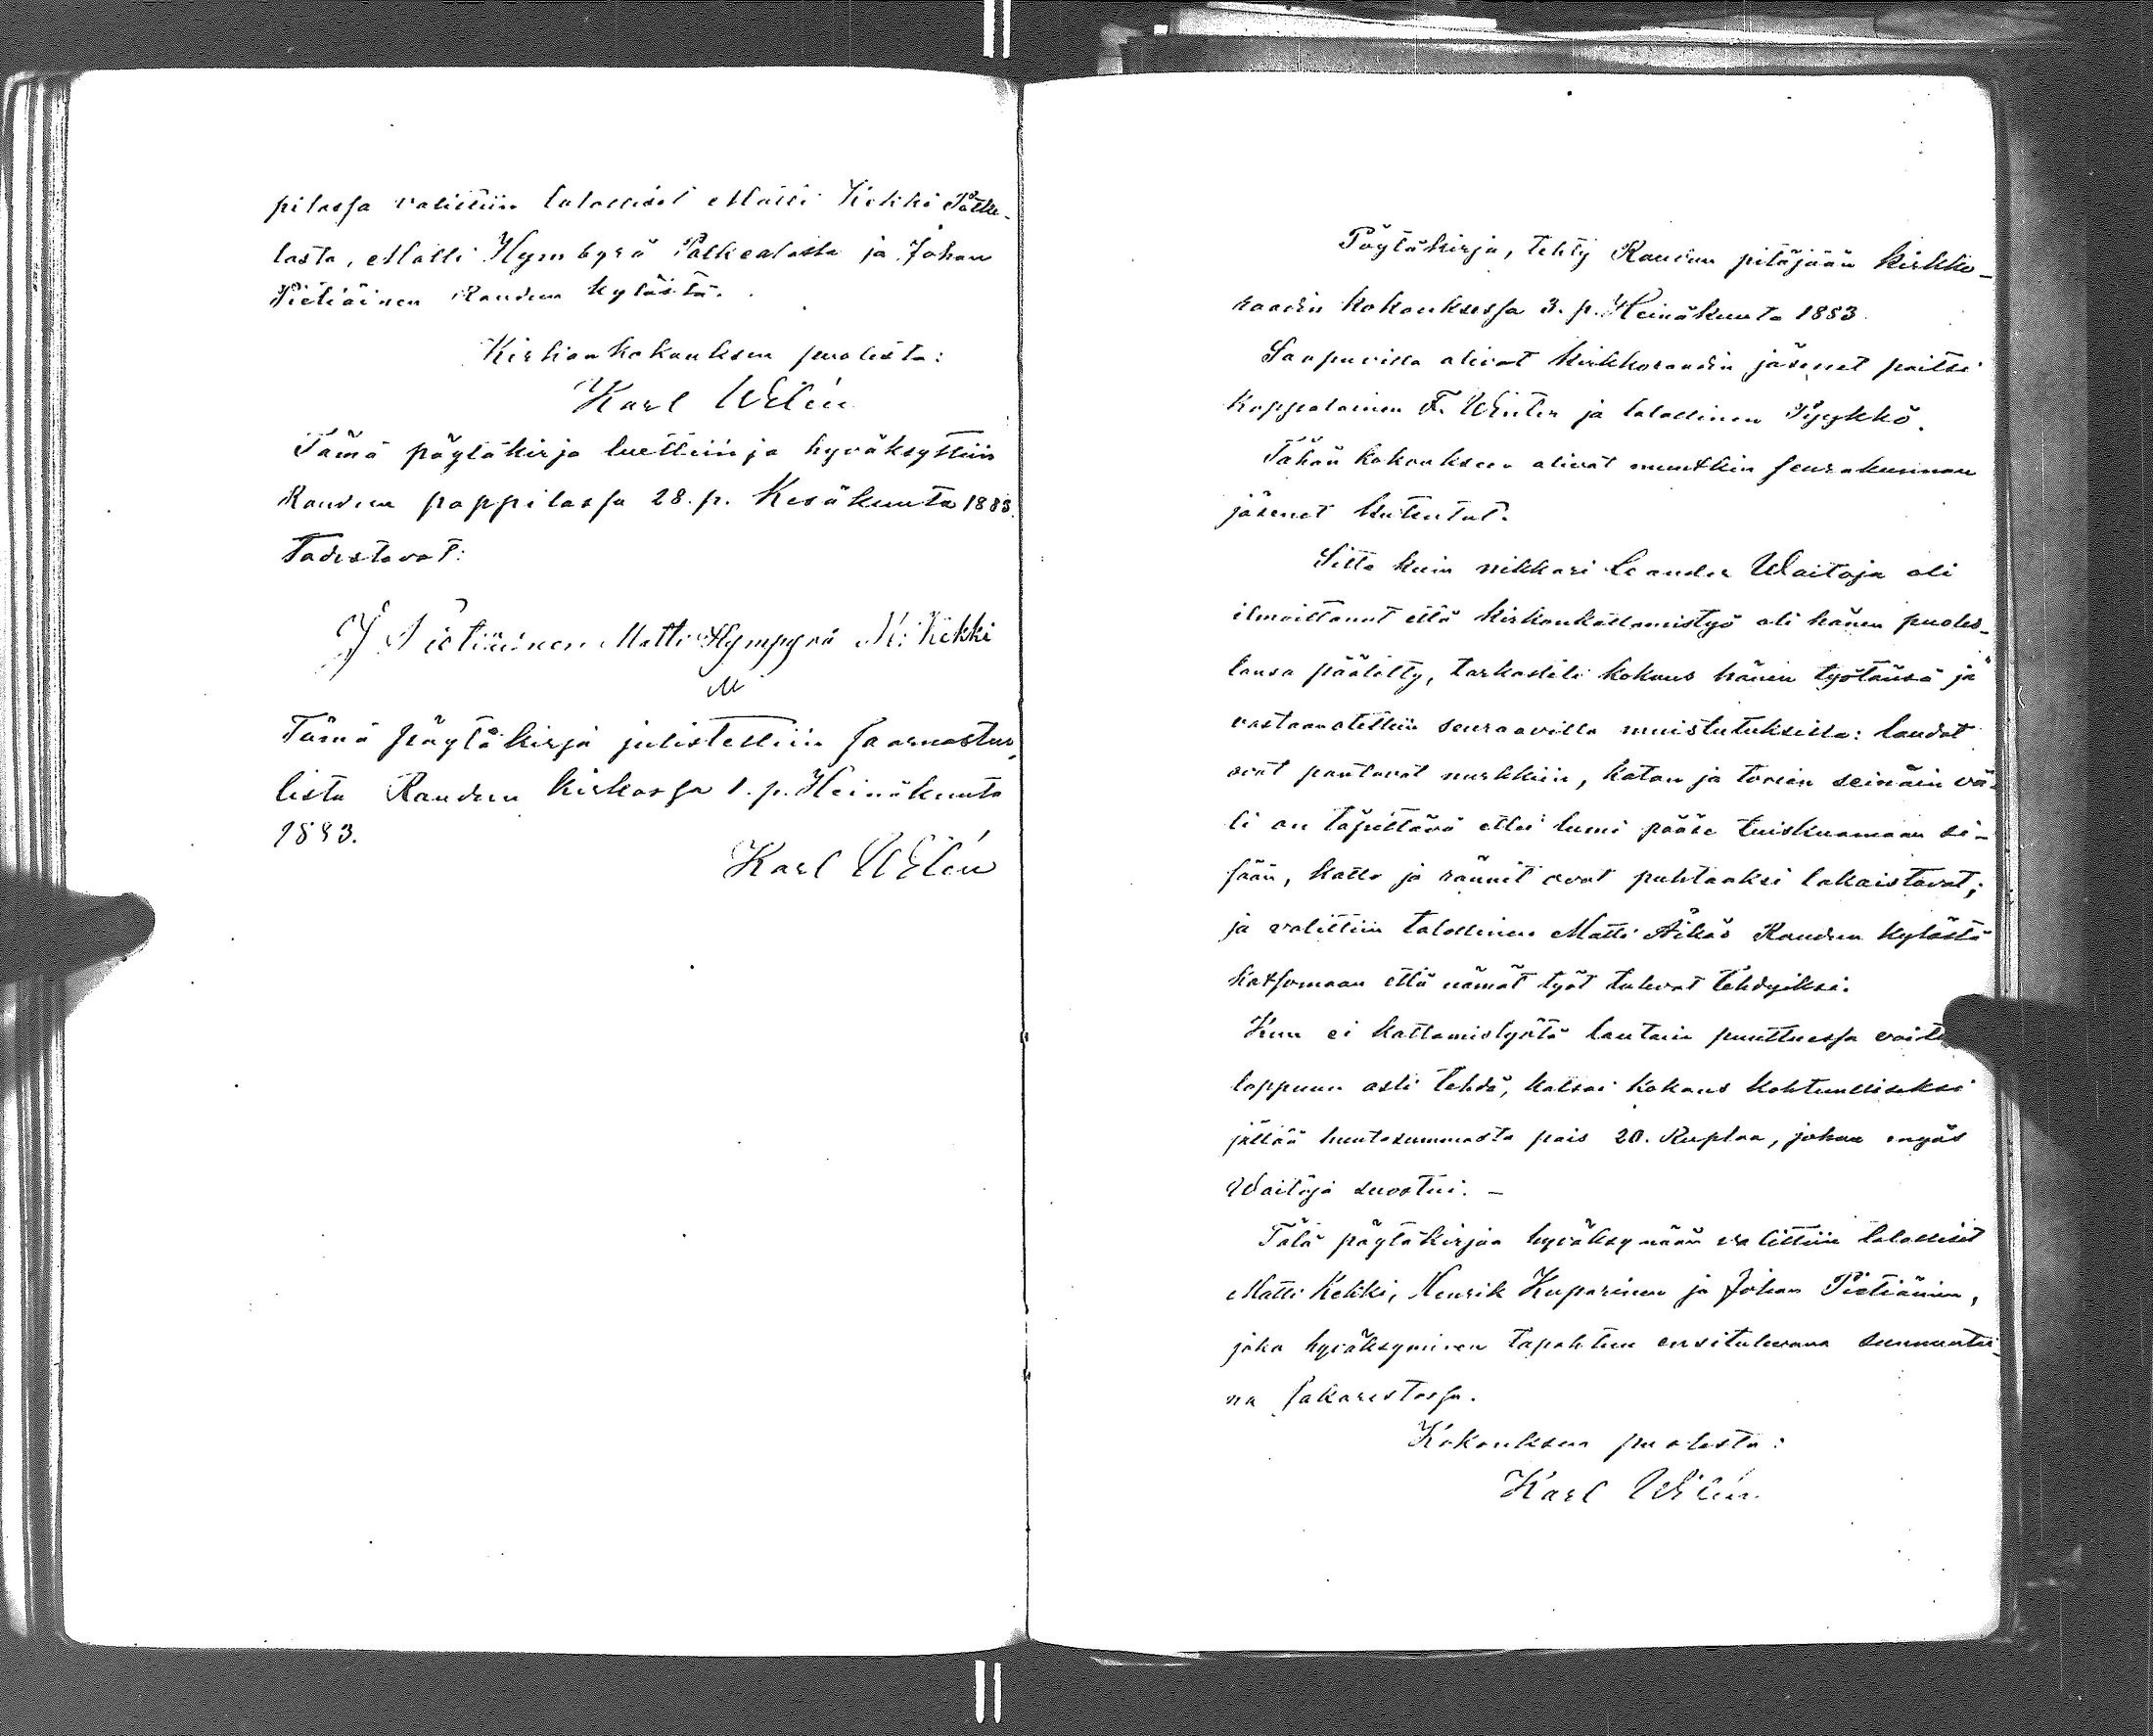 pilassa valittiin talolliset Matti Kekki Pätke-
lasta, Matti Hymbyrä Palkealasta ja Johan
Pietiäinen Raudun kylästä.
Kirkonkokouksen puolesta:
Karl Welin
Tämä pöytäkirja luettiin ja hyväksyttiin
Raudun pappilassa 28. p. Kesäkuuta 1883.
Todistavat:
J Pietiäinen Matti Hympyrä M: Kekki
M
Tämä pöytäkirja julistettiin saarnastuo-
lista Raudun kirkossa 1. p. Heinäkuuta
1883.
Karl Welin
Pöytäkirja, tehty Raudun pitäjään kirkko-
raadin kokouksessa 3. p. Heinäkuuta 1883.
Saapuvilla olivat kirkkoraadin jäsenet paitsi
kappalainen F. Winter ja talollinen Pyykkö.
Tähän kokoukseen olivat muutkin seurakunnan
jäsenet kutsutut.
Sitte kuin nikkari Leander Waitoja oli
ilmoittanut että kirkonkattamistyö oli hänen puoles-
tansa päätetty, tarkasteli kokous hänen työtänsä ja
vastaanotettiin seuraavilla muistutuksilla: laudat
ovat pantavat nurkkiin, katon ja tornin seinäin vä-
li on täytettävä ettei lumi pääse tuiskuamaan si-
sään, katto ja rännit ovat puhtaaksi lakaistavat;
ja valittiin talollinen Matti Äikäs Raudun kylästä
katsomaan että nämät työt tulevat tehdyiksi.
Kun ei kattamistyötä lautain puuttuessa voitu
loppuun asti tehdä, katsoi kokous kohtuulliseksi
jättää huutosummasta pois 20. Ruplaa, johon myös
Waitoja suostui. -
Tätä pöytäkirjaa hyväksymään valittiin talolliset
Matti Kekki, Henrik Kuparinen ja Johan Pietiäinen,
joka hyväksyminen tapahtuu ensitulevana sunnuntai-
na sakaristossa.
Kokouksen puolesta:
Karl Welin.